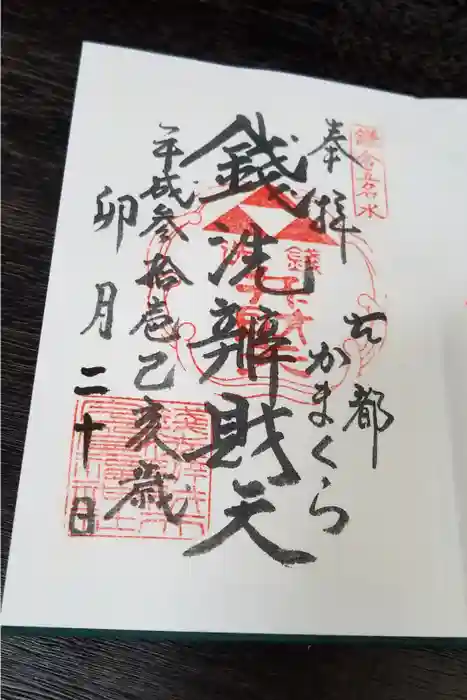 鎌倉五名水
奉拝
古都
かまくら
銭洗辨財天
平成参拾壱己亥歳
卯月二十日